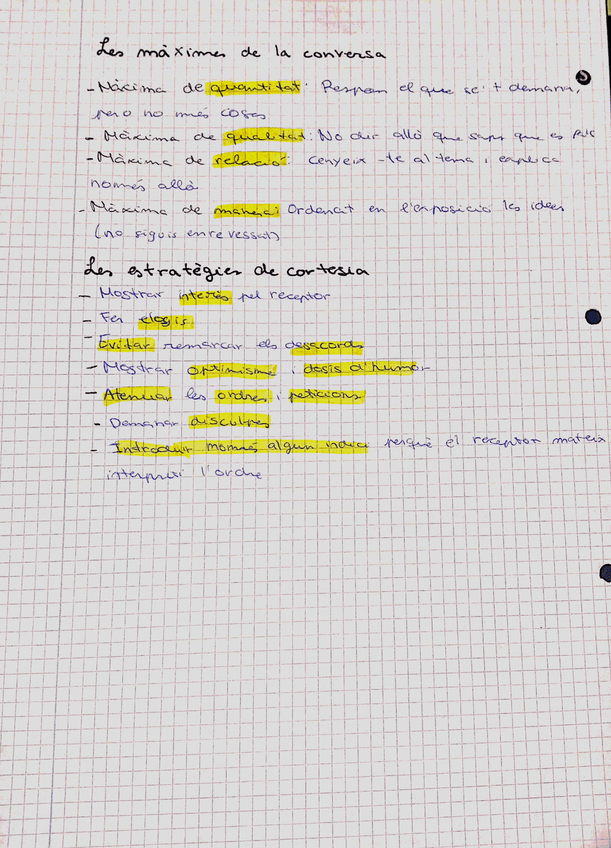 Les màximes de la conversa
- Màxima de quantitat: Respon el que se't demana,
pero no més coses
- Màxima de qualitat: No dir allò que saps que es
- Màxima de relació: cenyeix-te al tema i explica
només allò
- Màxima de manera: Ordenat en l'exposició les idees
(no siguis enrevessat)
Les estratègies de cortesia
- Mostrar interès pel receptor
- Fer elogis
- Evitar remarcar els desacords
- Mostrar optimisme i dosis d'humor
- Atenuar les ordres i peticions
- Demanar disculpes
- Introduir només algun indici perquè el receptor mateix
interpreti l'ordre